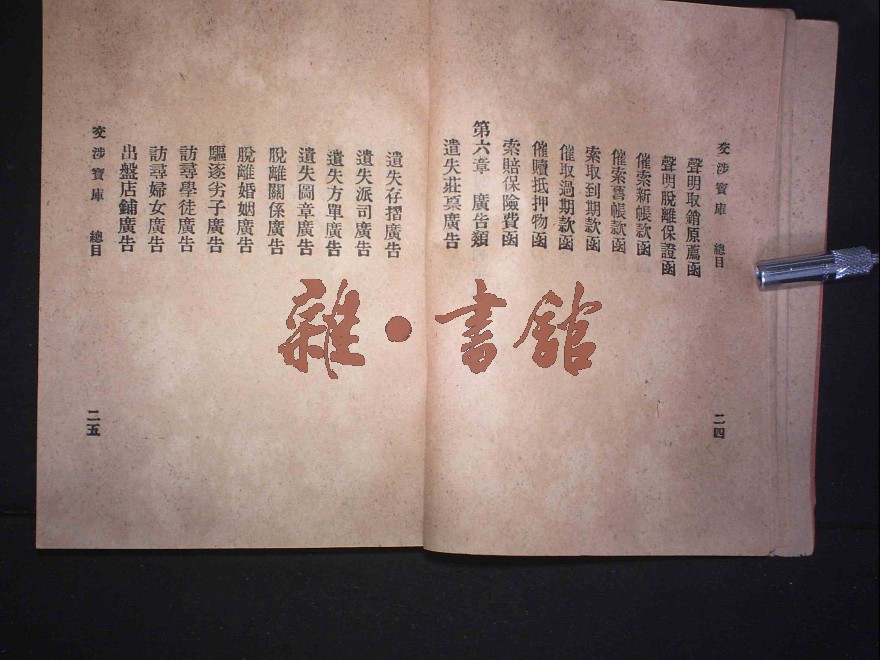 交涉寶庫　總目
聲明取銷原薦函
聲明脫離保證函
催索新帳款函
催索舊帳款函
索取到期款函
催取過期款函
催贖抵押物函
索賠保險費函
第六章　廣告類
遺失莊票廣告
二四
遺失存摺廣告
遺失派司廣告
遺失方單廣告
遺失圖章廣告
脫離關係廣告
脫離婚姻廣告
驅逐劣子廣告
訪尋學徒廣告
訪尋婦女廣告
出盤店鋪廣告
交涉寶庫　總目
二五
雜·書館